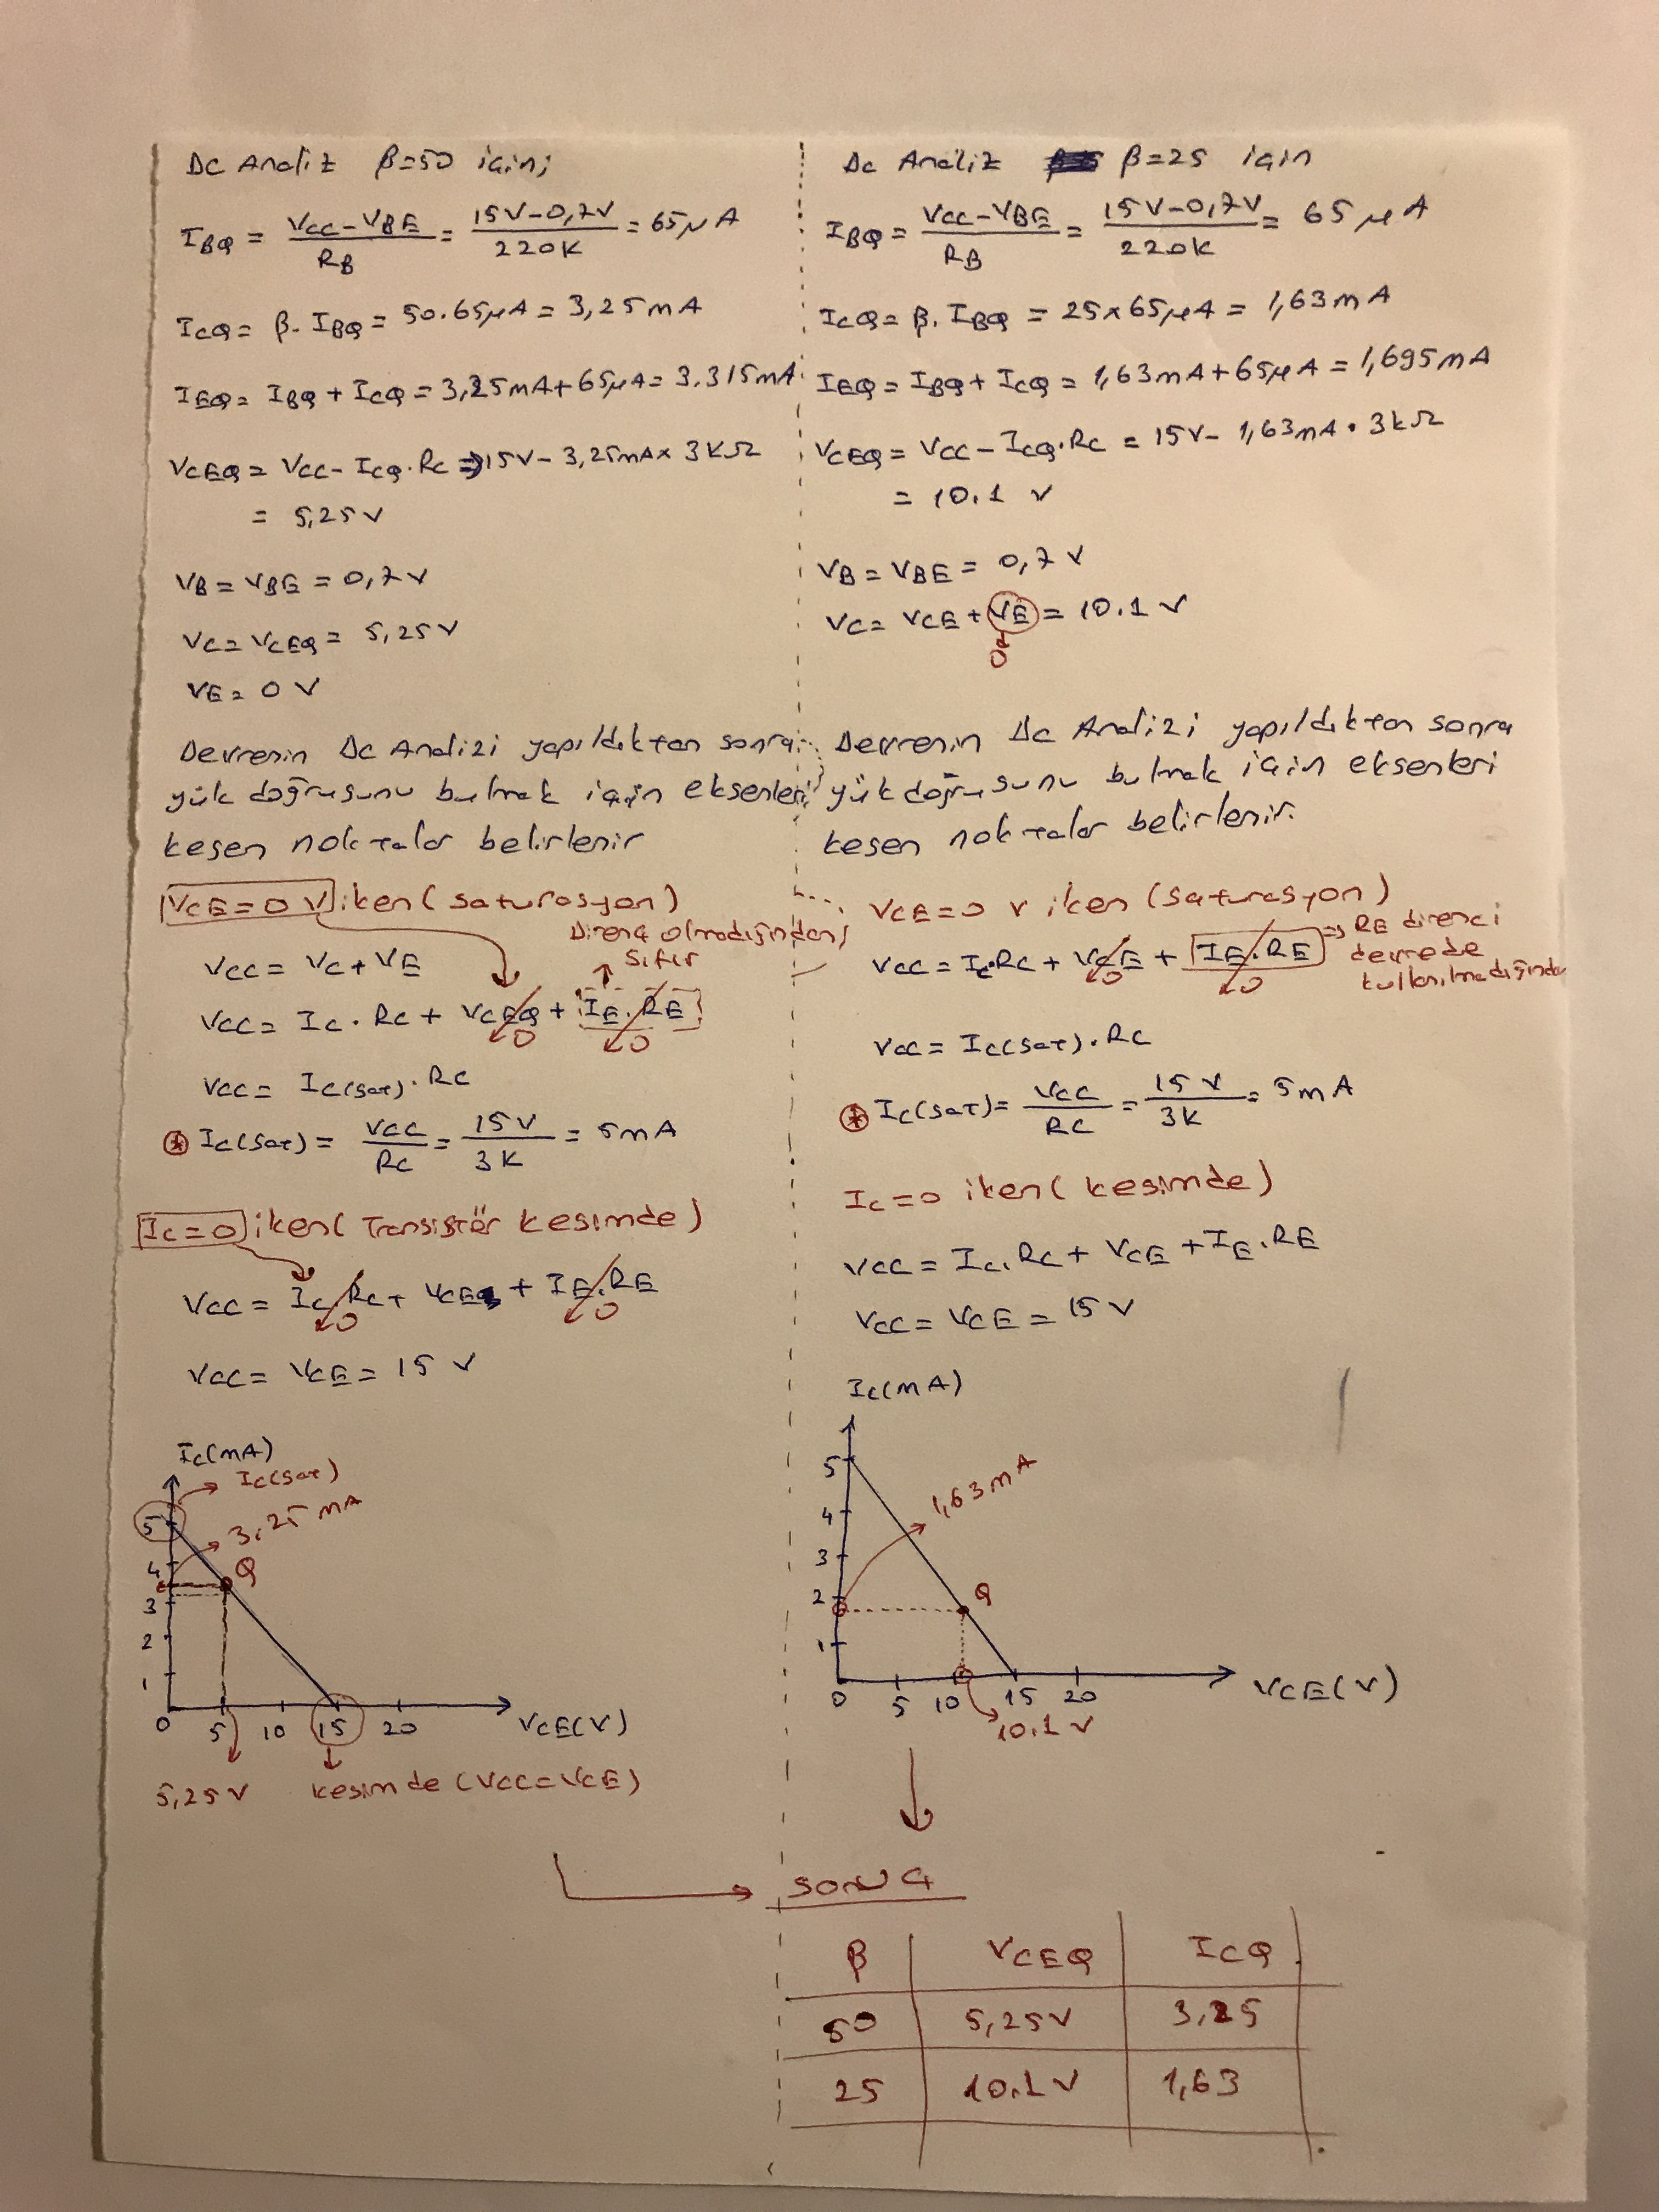 DC Analiz β=50 için;
IBQ = VCC-VBE / RB = 15V-0,7V / 220K = 65μA
ICQ = β. IBQ = 50.65μA = 3,25mA
IEQ = IBQ + ICQ = 3,25mA+65μA = 3.315mA
VCEQ = VCC- ICQ. RC => 15V- 3,25mA x 3KΩ
= 5,25V
VB = VBE = 0,7V
VC = VCEQ = 5,25V
VE = 0V
Devrenin DC Analizi yapıldıktan sonra
yük doğrusunu bulmak için eksenleri
kesen noktalar belirlenir
VCE=0 V iken (saturasyon)
Direnç olmadığından
sıfır
VCC = VC + VE
VCC = IC . RC + VCEQ + IE . RE
0 0
VCC = IC(sat) . RC
* IC(sat) = VCC / RC = 15V / 3K = 5mA
IC=0 iken (Transistör kesimde)
VCC = IC.RC + VCEQ + IE.RE
0 0
VCC = VCE = 15 V
IC(mA)
IC(sat)
3.25 mA
5
4
3
2
1
Q
0 5 10 15 20 VCE(V)
5,25V kesimde (VCC=VCE)
DC Analiz β=25 için
IBQ = VCC-VBE / RB = 15V-0,7V / 220K = 65μA
ICQ = β. IBQ = 25x65μA = 1,63mA
IEQ = IBQ + ICQ = 1,63mA+65μA = 1,695mA
VCEQ = VCC - ICQ.RC = 15V- 1,63mA . 3kΩ
= 10.1 V
VB = VBE = 0,7 V
VC = VCE + VE = 10.1 V
0
Devrenin DC Analizi yapıldıktan sonra
yük doğrusunu bulmak için eksenleri
kesen noktalar belirlenir.
VCE=0 V iken (saturasyon)
=> RE direnci
devrede
kullanılmadığından
VCC = IC.RC + VCE + IE.RE
0 0
VCC = IC(sat).RC
* IC(sat) = VCC / RC = 15 V / 3K = 5mA
IC=0 iken (kesimde)
VCC = IC.RC + VCE + IE.RE
VCC = VCE = 15 V
IC(mA)
1,63mA
5
4
3
2
1
Q
0 5 10 15 20 VCE(V)
10.1 V
SONUÇ
β VCEQ ICQ
50 5,25V 3,25
25 10.1V 1,63